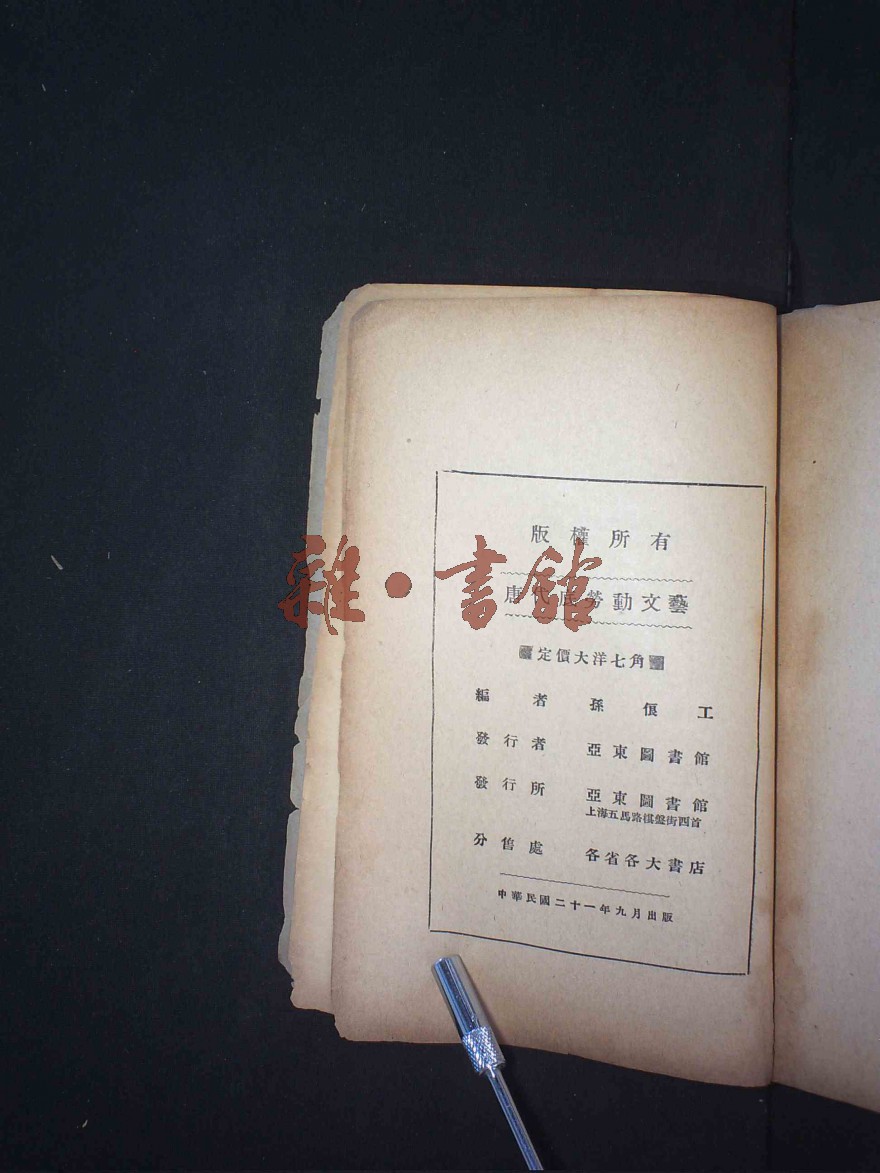 版權所有
唐代底勞動文藝
定價大洋七角
編者 孫俍工
發行者 亞東圖書館
發行所 亞東圖書館
上海五馬路棋盤街西首
分售處 各省各大書店
中華民國二十一年九月出版
雜·書館